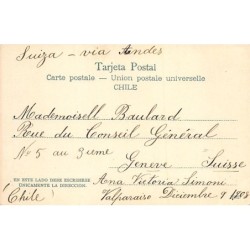 Suiza - via Andes
Tarjeta Postal
Carte postale — Union postale universelle
CHILE
Mademoisell Baulard
Rue du Conseil Général
No 5 au 3ieme
Geneve Suisse
EN ESTE LADO DEBE ESCRIBIRSE
ÚNICAMENTE LA DIRECCION.
Ana Victoria Simoni
(Chile) Valparaiso Diciembre 9 1908